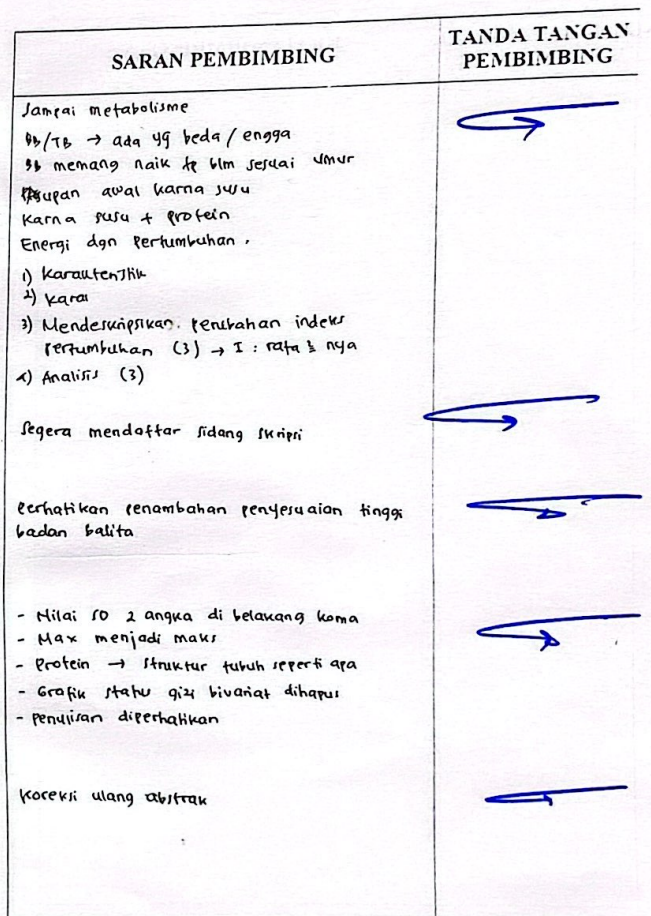 SARAN PEMBIMBING
TANDA TANGAN
PEMBIMBING
Sampai metabolisme
BB/TB → ada yg beda / engga
BB memang naik tp blm sesuai umur
Asupan awal karna susu
Karna susu + protein
Energi dgn pertumbuhan.
1) Karauteristik
2) Karal
3) Mendeskripsikan. perubahan indeks
pertumbuhan (3) → I : rata2 nya
4) Analisis (3)
Segera mendaftar sidang skripsi
Perhatikan penambahan penyesuaian tinggi
badan balita
- Nilai SD 2 angka di belakang koma
- Max menjadi maks
- Protein → Struktur tubuh seperti apa
- Grafik status gizi bivariat dihapus
- Penulisan diperhatikan
Koreksi ulang abstrak